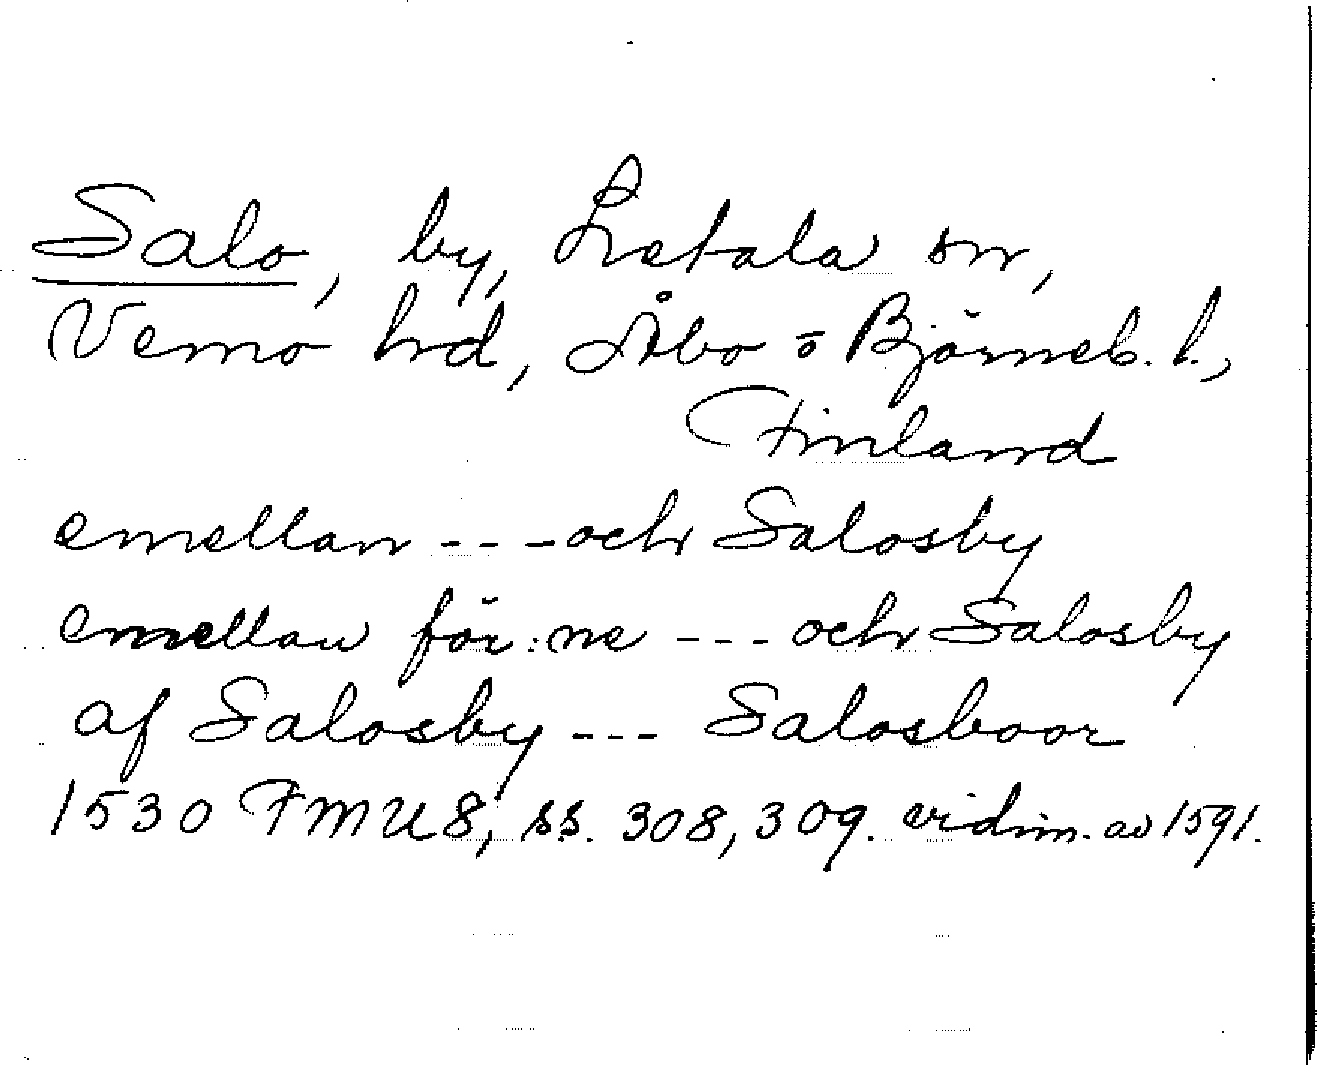 Salo, by, Letala sn,
Vemo hd, Åbo o Björneb. l.,
Finland
emellan --- och Salosby
emellan för:ne --- och Salosby
af Salosby --- Salosboor
1530 FMU 8, ss. 308, 309. vidim. av 1591.